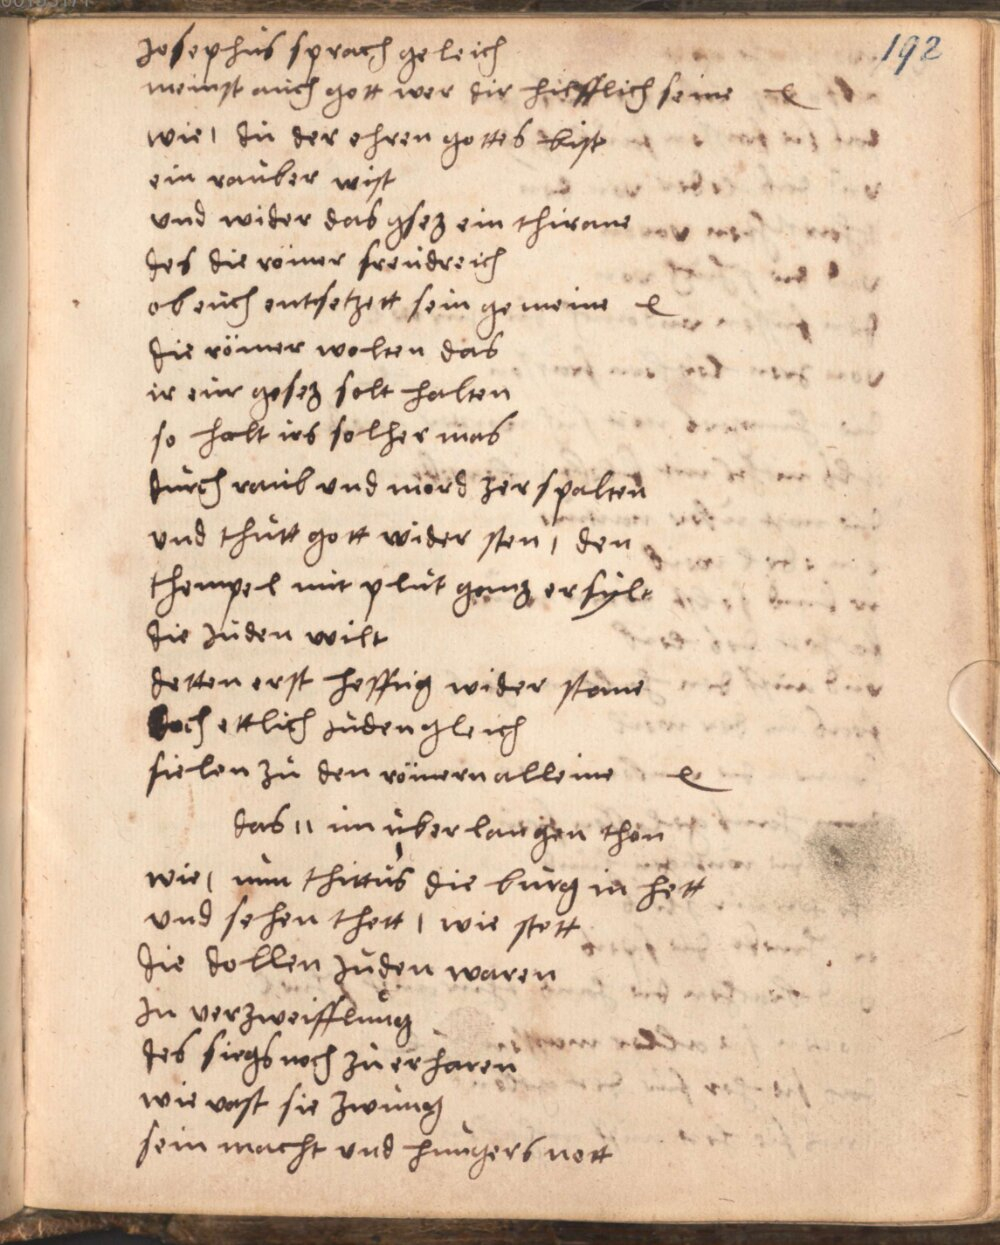 192
Josephus sprach geleich
meinst auch gott wer dir hilfflich seine
wie, du der ehren gottes bist
ein rauber wist
und wider das gsez ein thirane
des die römer freudreich
ob euch entsetzett sein gemeine
die römer wolten das
ir eur gesez solt halten
so halt irs solher mas
durch raub und mord zerspalten
und thutt gott wider sten, den
thempel mit plut ganz erfylt
die Juden wilt
detten erst hefftig wider stane
doch ettlich Juden gleich
fielen zu den römern alleine
das 11 im uberlangen thon
wie, nun thittus die burg in hett
und sehen thett, wie stett
die dollen Juden waren
In verzweifflung
des siegs noch zu erharen
wie vast sie zwung
sein macht und hungers nott